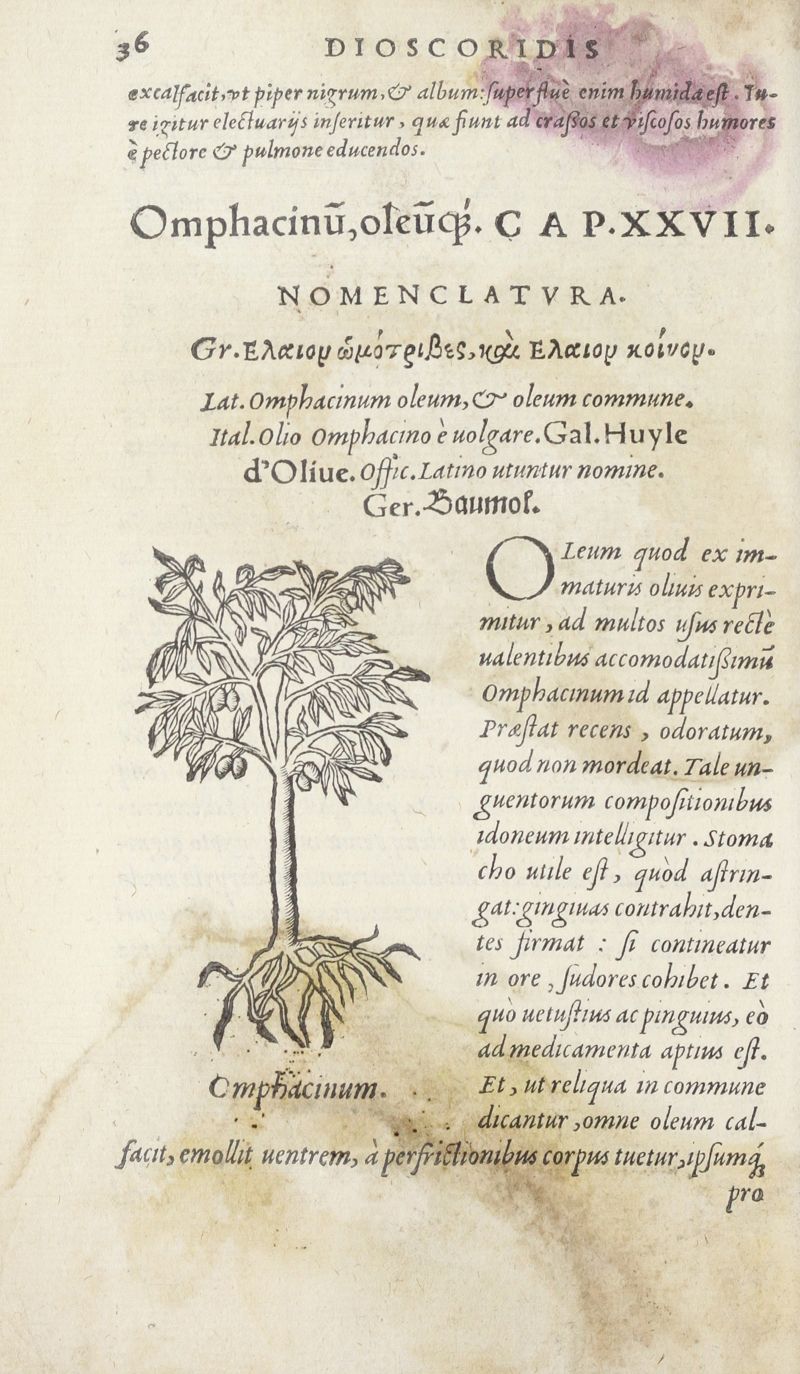 36 DIOSCORIDIS
excalfacit, vt piper nigrum, & album: ſuperfluè enim humida eſt. Iu-
re igitur electuarijs inſeritur, quæ fiunt ad craſſos et viſcoſos humores
è pectore & pulmone educendos.
Omphacinū, oleūq́;. CAP. XXVII.
NOMENCLATVRA.
Gr. Ελαιον ὠμότριβες, καὶ Ελαιον κοίνον.
Lat. Omphacinum oleum, & oleum commune.
Ital. Olio Omphacino è uolgare. Gal. Huyle
d'Oliue. Offic. Latino utuntur nomine.
Ger. Baumol.
OLeum quod ex im-
maturis oliuis expri-
mitur, ad multos uſus rectè
ualentibus accomodatiſſimū
Omphacinum id appellatur.
Præſtat recens, odoratum,
quod non mordeat. Tale un-
guentorum compoſitionibus
idoneum intelligitur. Stoma
cho utile eſt, quòd aſtrin-
gat: gingiuas contrahit, den-
tes firmat : ſi contineatur
in ore, ſudores cohibet. Et
quò uetuſtius ac pinguius, eò
ad medicamenta aptius eſt.
Omphacinum.
Et, ut reliqua in commune
dicantur, omne oleum cal-
facit, emollit uentrem, à perfrictionibus corpus tuetur, ipſumq́;
pro